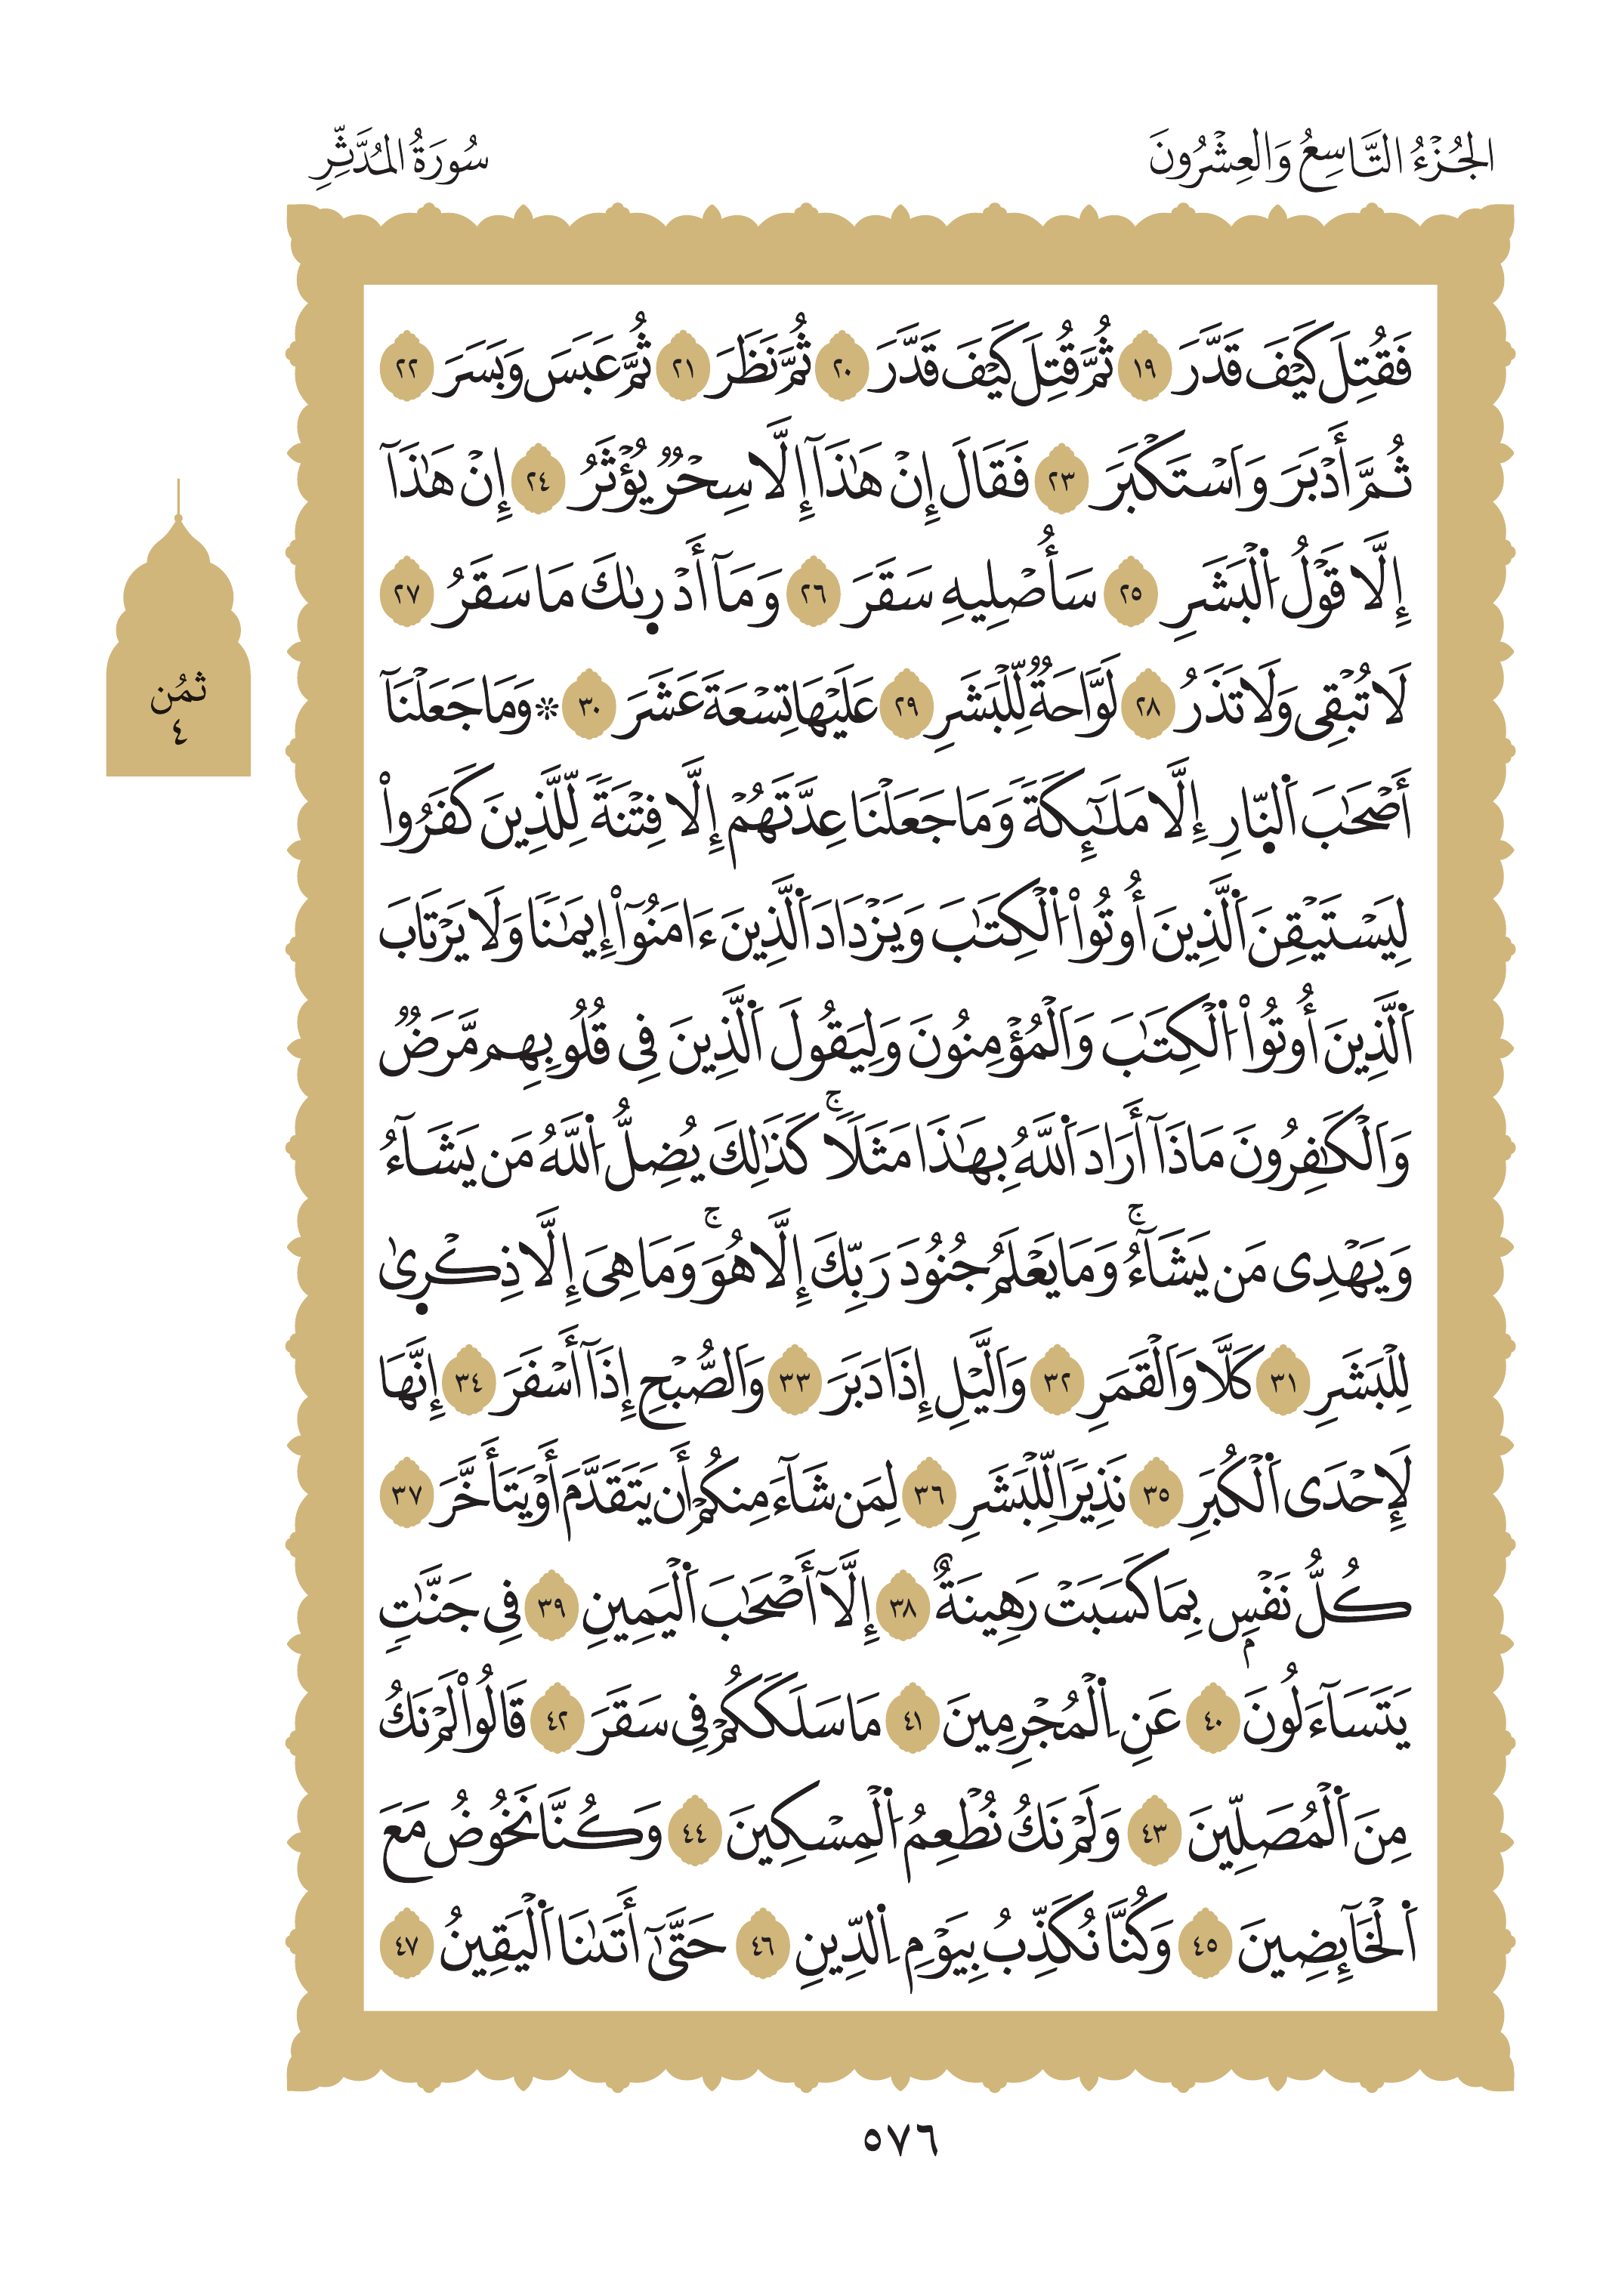 الجُزْءُ التَّاسِعُ وَالعِشْرُونَ
سُورَةُ المُدَّثِّرِ
فَقُتِلَ كَيْفَ قَدَّرَ ١٩ ثُمَّ قُتِلَ كَيْفَ قَدَّرَ ٢٠ ثُمَّ نَظَرَ ٢١ ثُمَّ عَبَسَ وَبَسَرَ ٢٢
ثُمَّ أَدْبَرَ وَاَسْتَكْبَرَ ٢٣ فَقَالَ إِنْ هَٰذَآ إِلَّا سِحْرٌ يُؤْثَرُ ٢٤ إِنْ هَٰذَآ
إِلَّا قَوْلُ اُ۬لْبَشَرِ ٢٥ سَأُصْلِيهِ سَقَرَ ٢٦ وَمَآ أَدْر۪ىٰكَ مَا سَقَرُ ٢٧
لَا تُبْقِى وَلَا تَذَرُ ٢٨ لَوَّاحَةٌ لِّلْبَشَرِ ٢٩ عَلَيْهَا تِسْعَةَ عَشَرَ ٣٠ ۞ وَمَا جَعَلْنَآ
أَصْحَٰبَ اَ۬لنّ۪ارِ إِلَّا مَلَٰٓئِكَةً وَمَا جَعَلْنَا عِدَّتَهُمْ إِلَّا فِتْنَةً لِّلَّذِينَ كَفَرُواْ
لِيَسْتَيْقِنَ اَ۬لَّذِينَ أُوتُواْ اُ۬لْكِتَٰبَ وَيَزْدَادَ اَ۬لَّذِينَ ءَامَنُوٓاْ إِيمَٰنًا وَلَا يَرْتَابَ
اَ۬لَّذِينَ أُوتُواْ اُ۬لْكِتَٰبَ وَالْمُؤْمِنُونَ وَلِيَقُولَ اَ۬لَّذِينَ فِى قُلُوبِهِم مَّرَضٌ
وَالْكَٰفِرُونَ مَاذَآ أَرَادَ اَ۬للَّهُ بِهَٰذَا مَثَلًا ۚ كَذَٰلِكَ يُضِلُّ اُ۬للَّهُ مَن يَشَآءُ
وَيَهْدِى مَن يَشَآءُ ۚ وَمَا يَعْلَمُ جُنُودَ رَبِّكَ إِلَّا هُوَ ۚ وَمَا هِىَ إِلَّا ذِكْر۪ىٰ
لِلْبَشَرِ ٣١ كَلَّا وَالْقَمَرِ ٣٢ وَالَّيْلِ إِذَا دَبَرَ ٣٣ وَالصُّبْحِ إِذَآ أَسْفَرَ ٣٤ إِنَّهَا
لَإِحْدَى اَ۬لْكُبَرِ ٣٥ نَذِيرًا لِّلْبَشَرِ ٣٦ لِمَن شَآءَ مِنكُمْ أَن يَتَقَدَّمَ أَوْ يَتَأَخَّرَ ٣٧
كُلُّ نَفْسِۢ بِمَا كَسَبَتْ رَهِينَةٌ ٣٨ إِلَّآ أَصْحَٰبَ اَ۬لْيَمِينِ ٣٩ فِى جَنَّٰتٍ
يَتَسَآءَلُونَ ٤٠ عَنِ اِ۬لْمُجْرِمِينَ ٤١ مَا سَلَكَكُمْ فِى سَقَرَ ٤٢ قَالُواْ لَمْ نَكُ
مِنَ اَ۬لْمُصَلِّينَ ٤٣ وَلَمْ نَكُ نُطْعِمُ اُ۬لْمِسْكِينَ ٤٤ وَكُنَّا نَخُوضُ مَعَ
اَ۬لْخَآئِضِينَ ٤٥ وَكُنَّا نُكَذِّبُ بِيَوْمِ اِ۬لدِّينِ ٤٦ حَتَّىٰٓ أَتَىٰنَا اَ۬لْيَقِينُ ٤٧
ثمُن
٤
٥٧٦